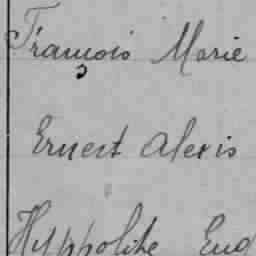 François Marie
Ernest Alexis
Hyppolite Eug